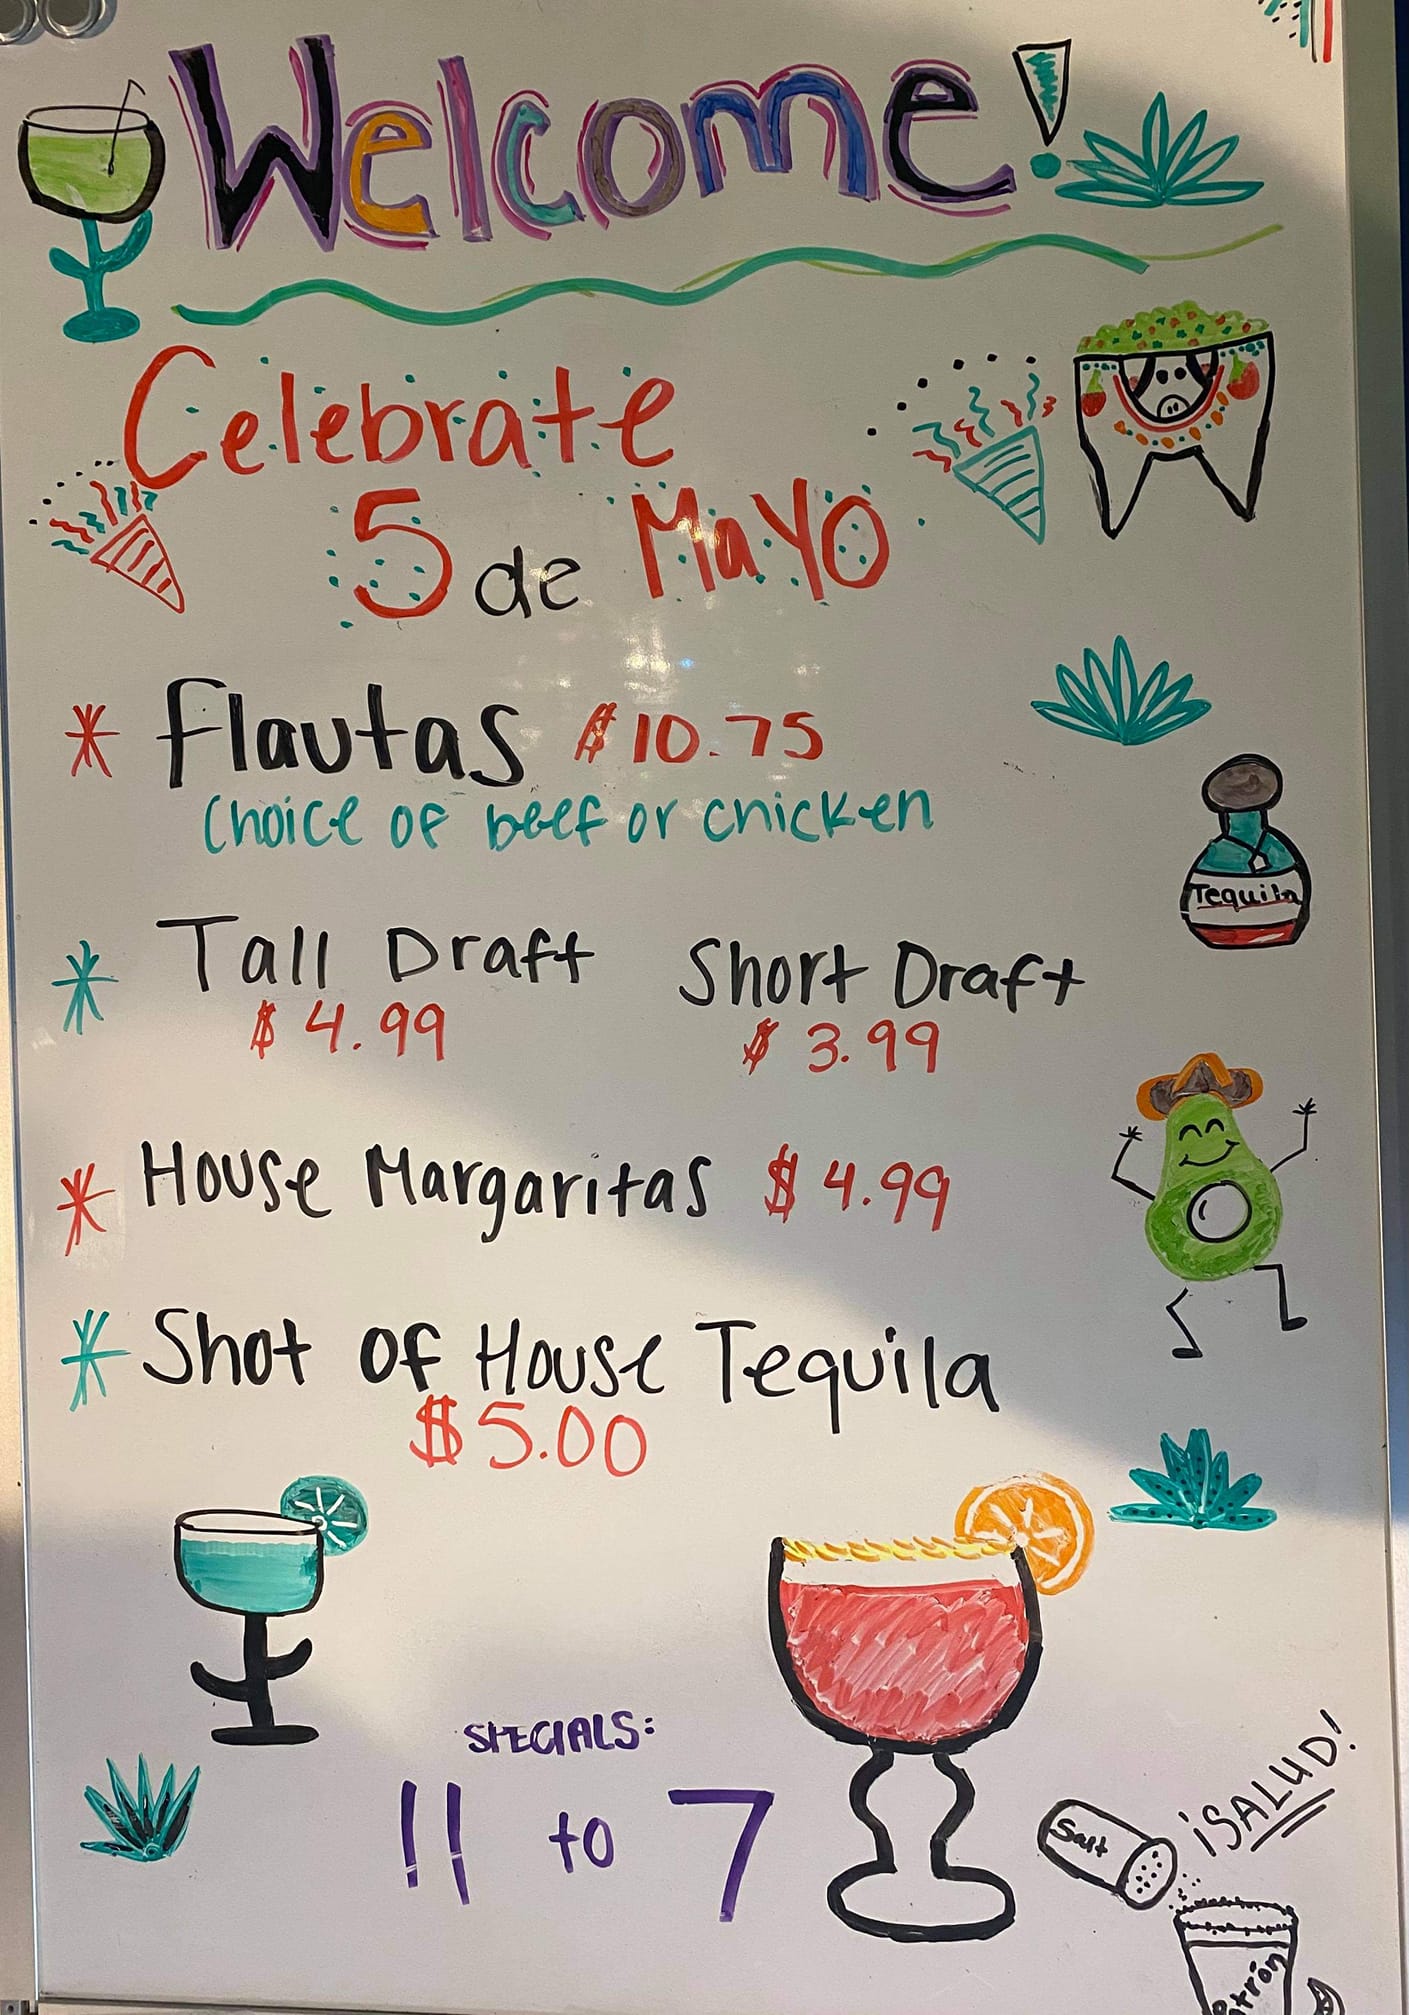 Welcome!
Celebrate
5 de Mayo
* Flautas $10.75
Choice of beef or chicken
* Tall Draft Short Draft
$4.99 $3.99
Tequila
* House Margaritas $4.99
* Shot of House Tequila
$5.00
SPECIALS:
11 to 7
¡SALUD!
Salt